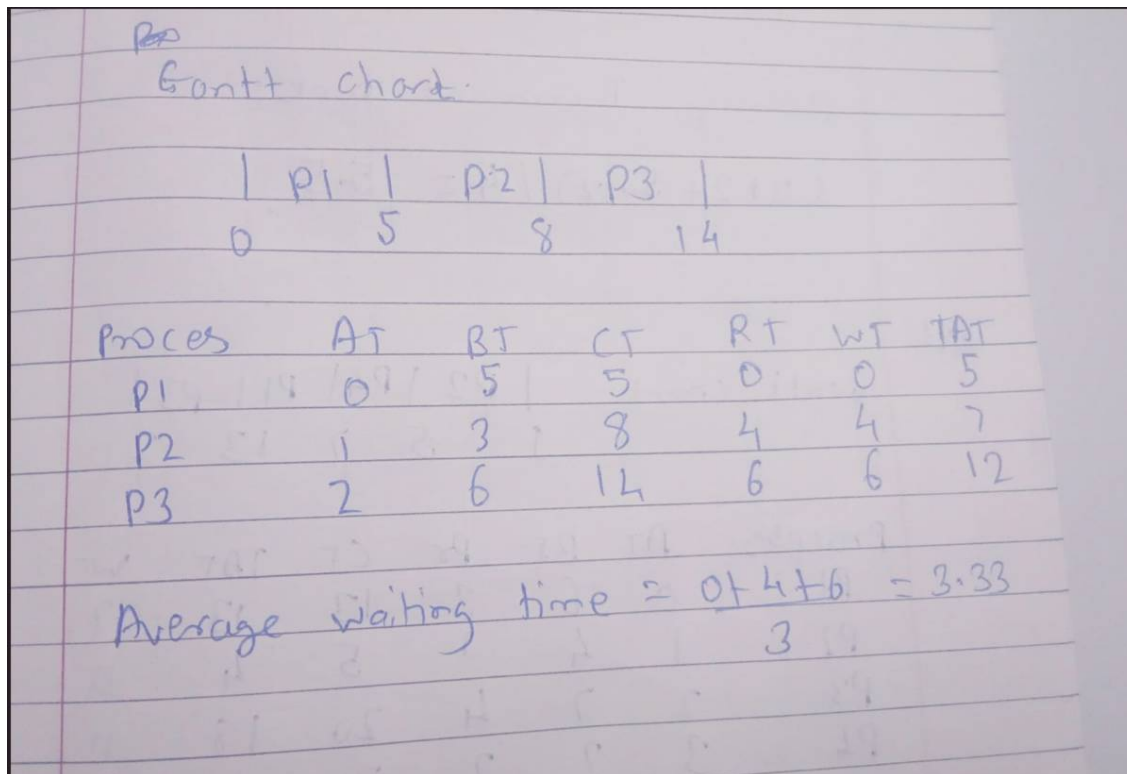 Gantt chart.
| P1 | P2 | P3 |
0 5 8 14
Proces AT BT CT RT WT TAT
P1 0 5 5 0 0 5
P2 1 3 8 4 4 7
P3 2 6 14 6 6 12
Average waiting time = 0+4+6 = 3.33
3